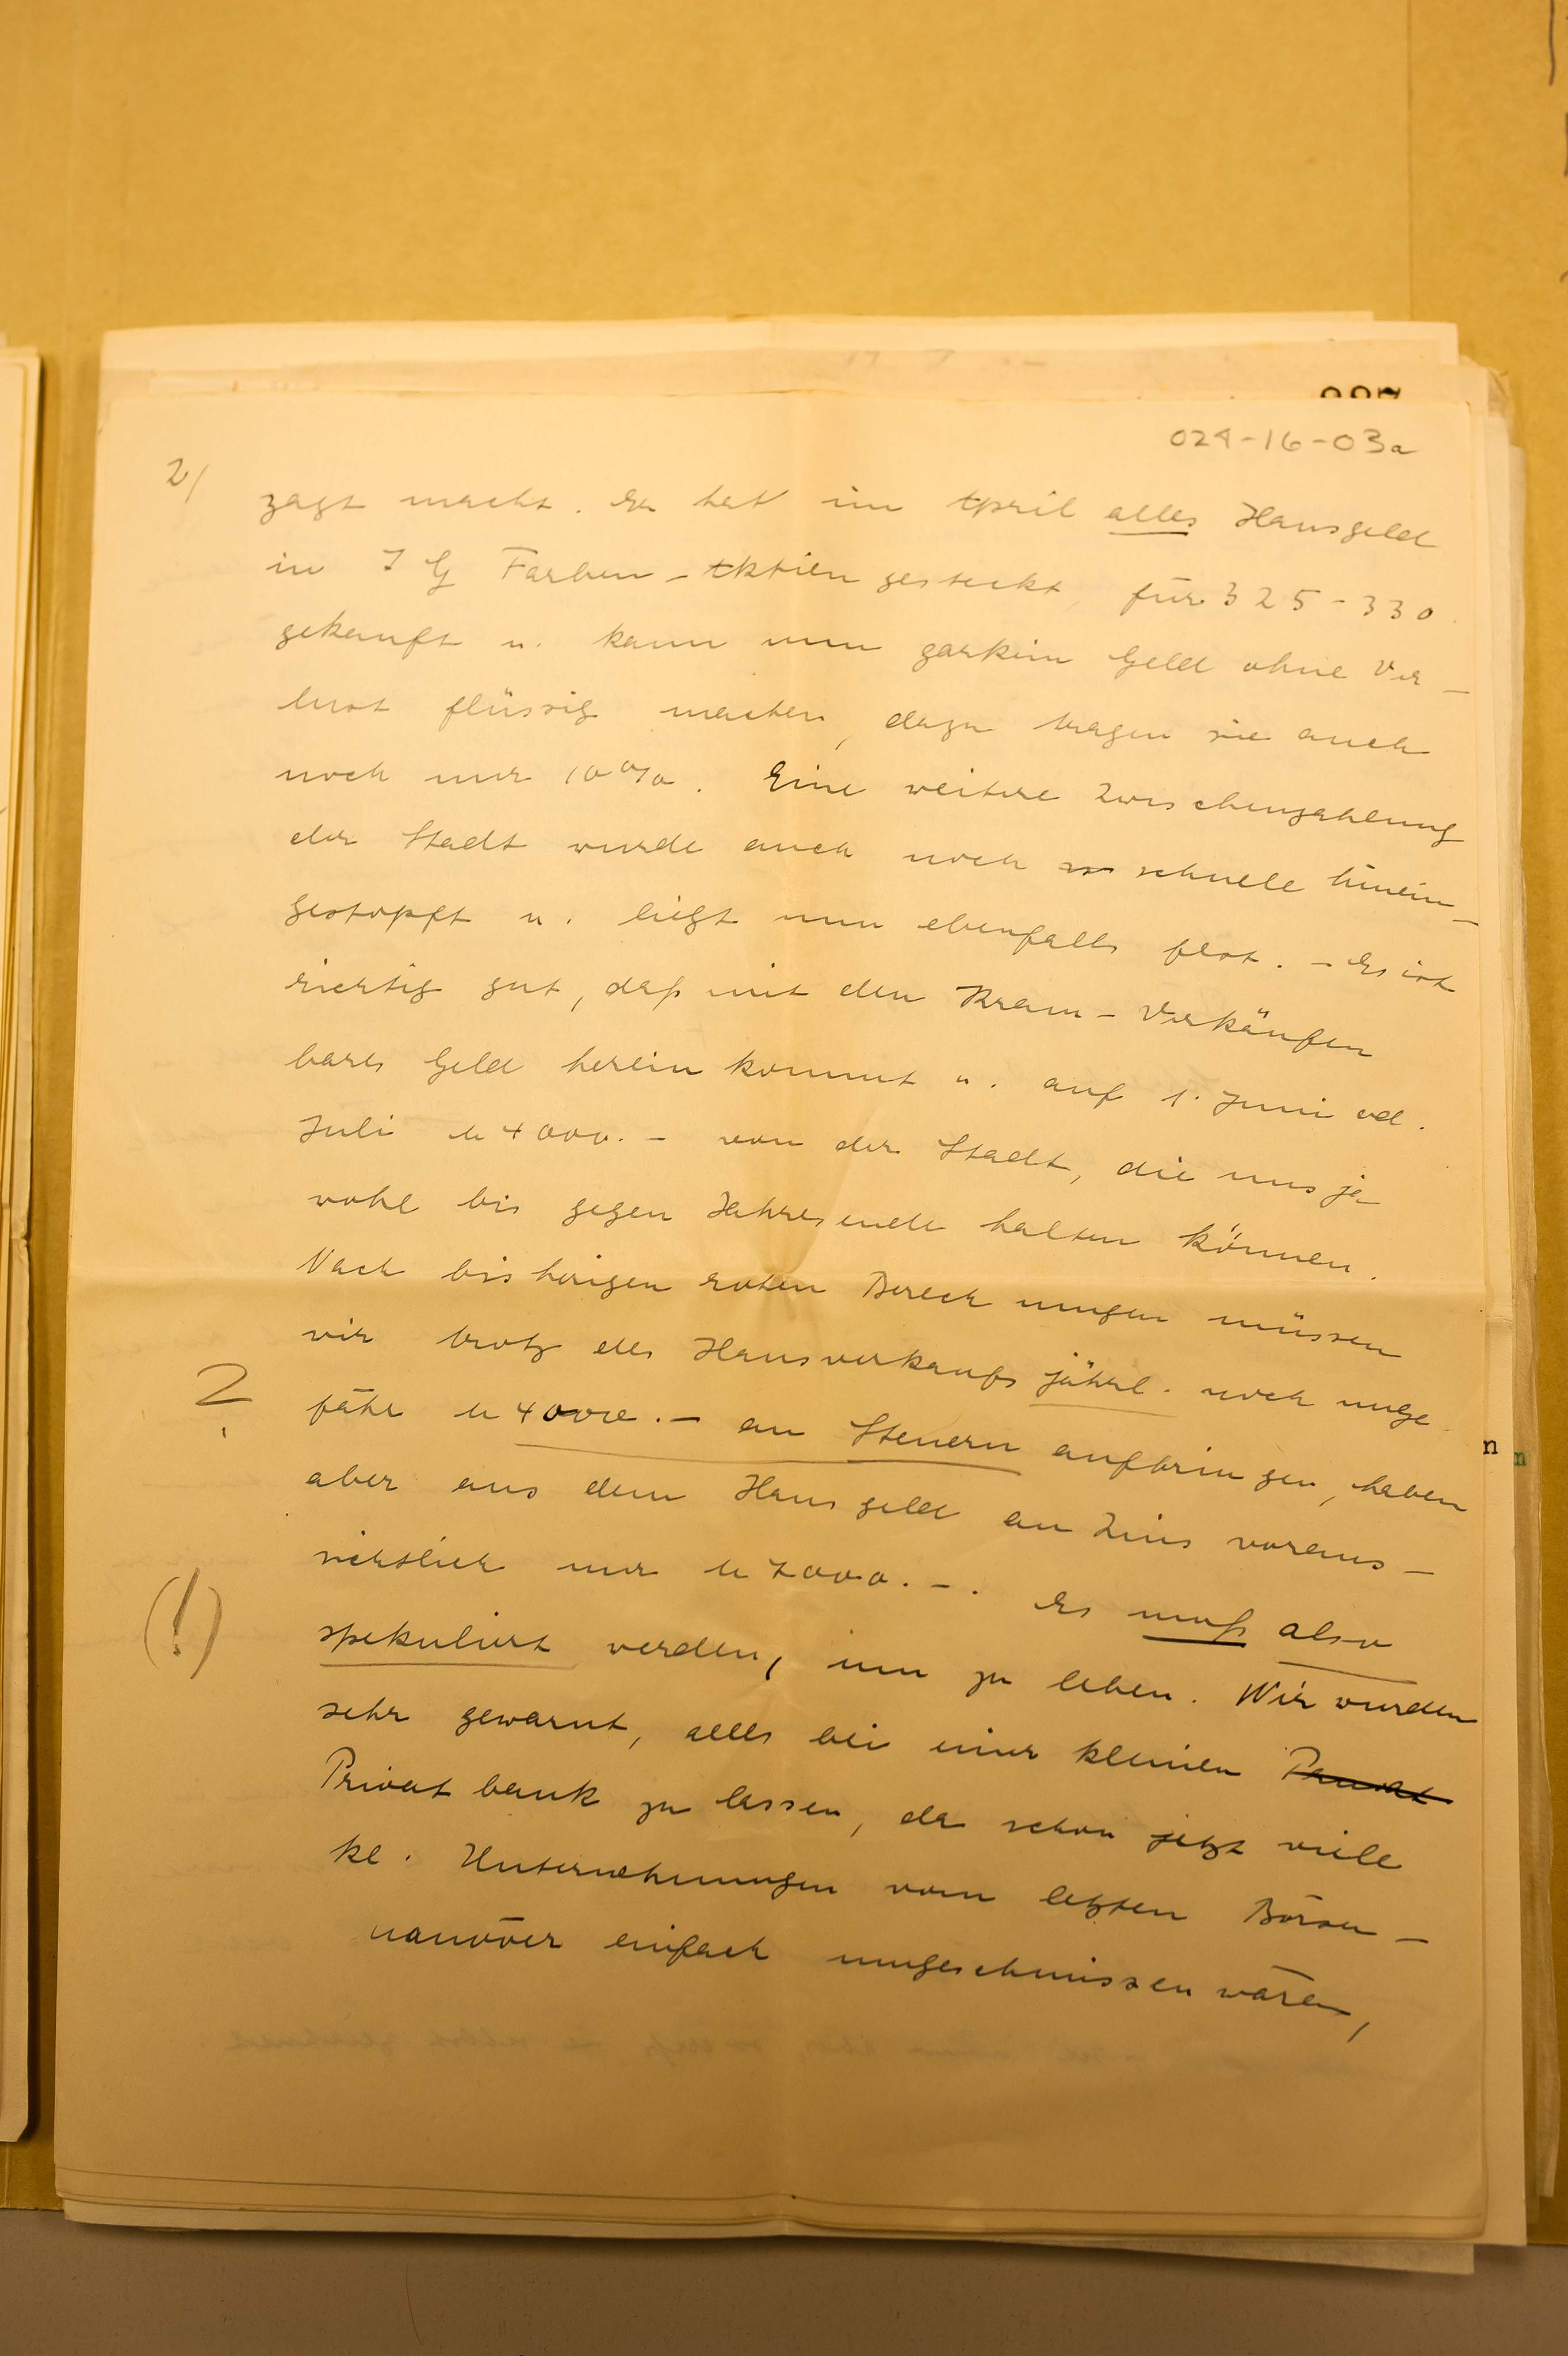 024-16-03a
2/
zagt macht. Er hat im April alles Hausgeld
in I G Farben-Aktien gesteckt, für 325-330
gekauft u. kann nun garkein Geld ohne Ver-
lust flüssig machen, dazu tragen sie auch
noch nur 10%. Eine weitere Zwischenzahlung
der Stadt wurde auch noch so schnell hinein-
gestopft u. liegt nun ebenfalls fest. - Es ist
richtig gut, daß mit den Kram-Verkäufen
bares Geld herein kommt u. auf 1. Juni od.
Juli M 4000.- von der Stadt, die uns ja
wohl bis gegen Jahresende halten können.
Nach bisherigen rohen Berechnungen müssen
wir trotz des Hausverkaufs jährl. noch unge
?
fähr M 4000.- an Steuern aufbringen, haben
aber aus dem Hausgeld an Zins voraus-
sichtlich nur M 7000.-. Es muß also
(!)
spekuliert werden, um zu leben. Wir wurden
sehr gewarnt, alles bei einer kleinen Privat
Privatbank zu lassen, da schon jetzt viele
kl. Unternehmungen vom letzten Börsen-
manöver einfach umgeschmissen wären,
n
n